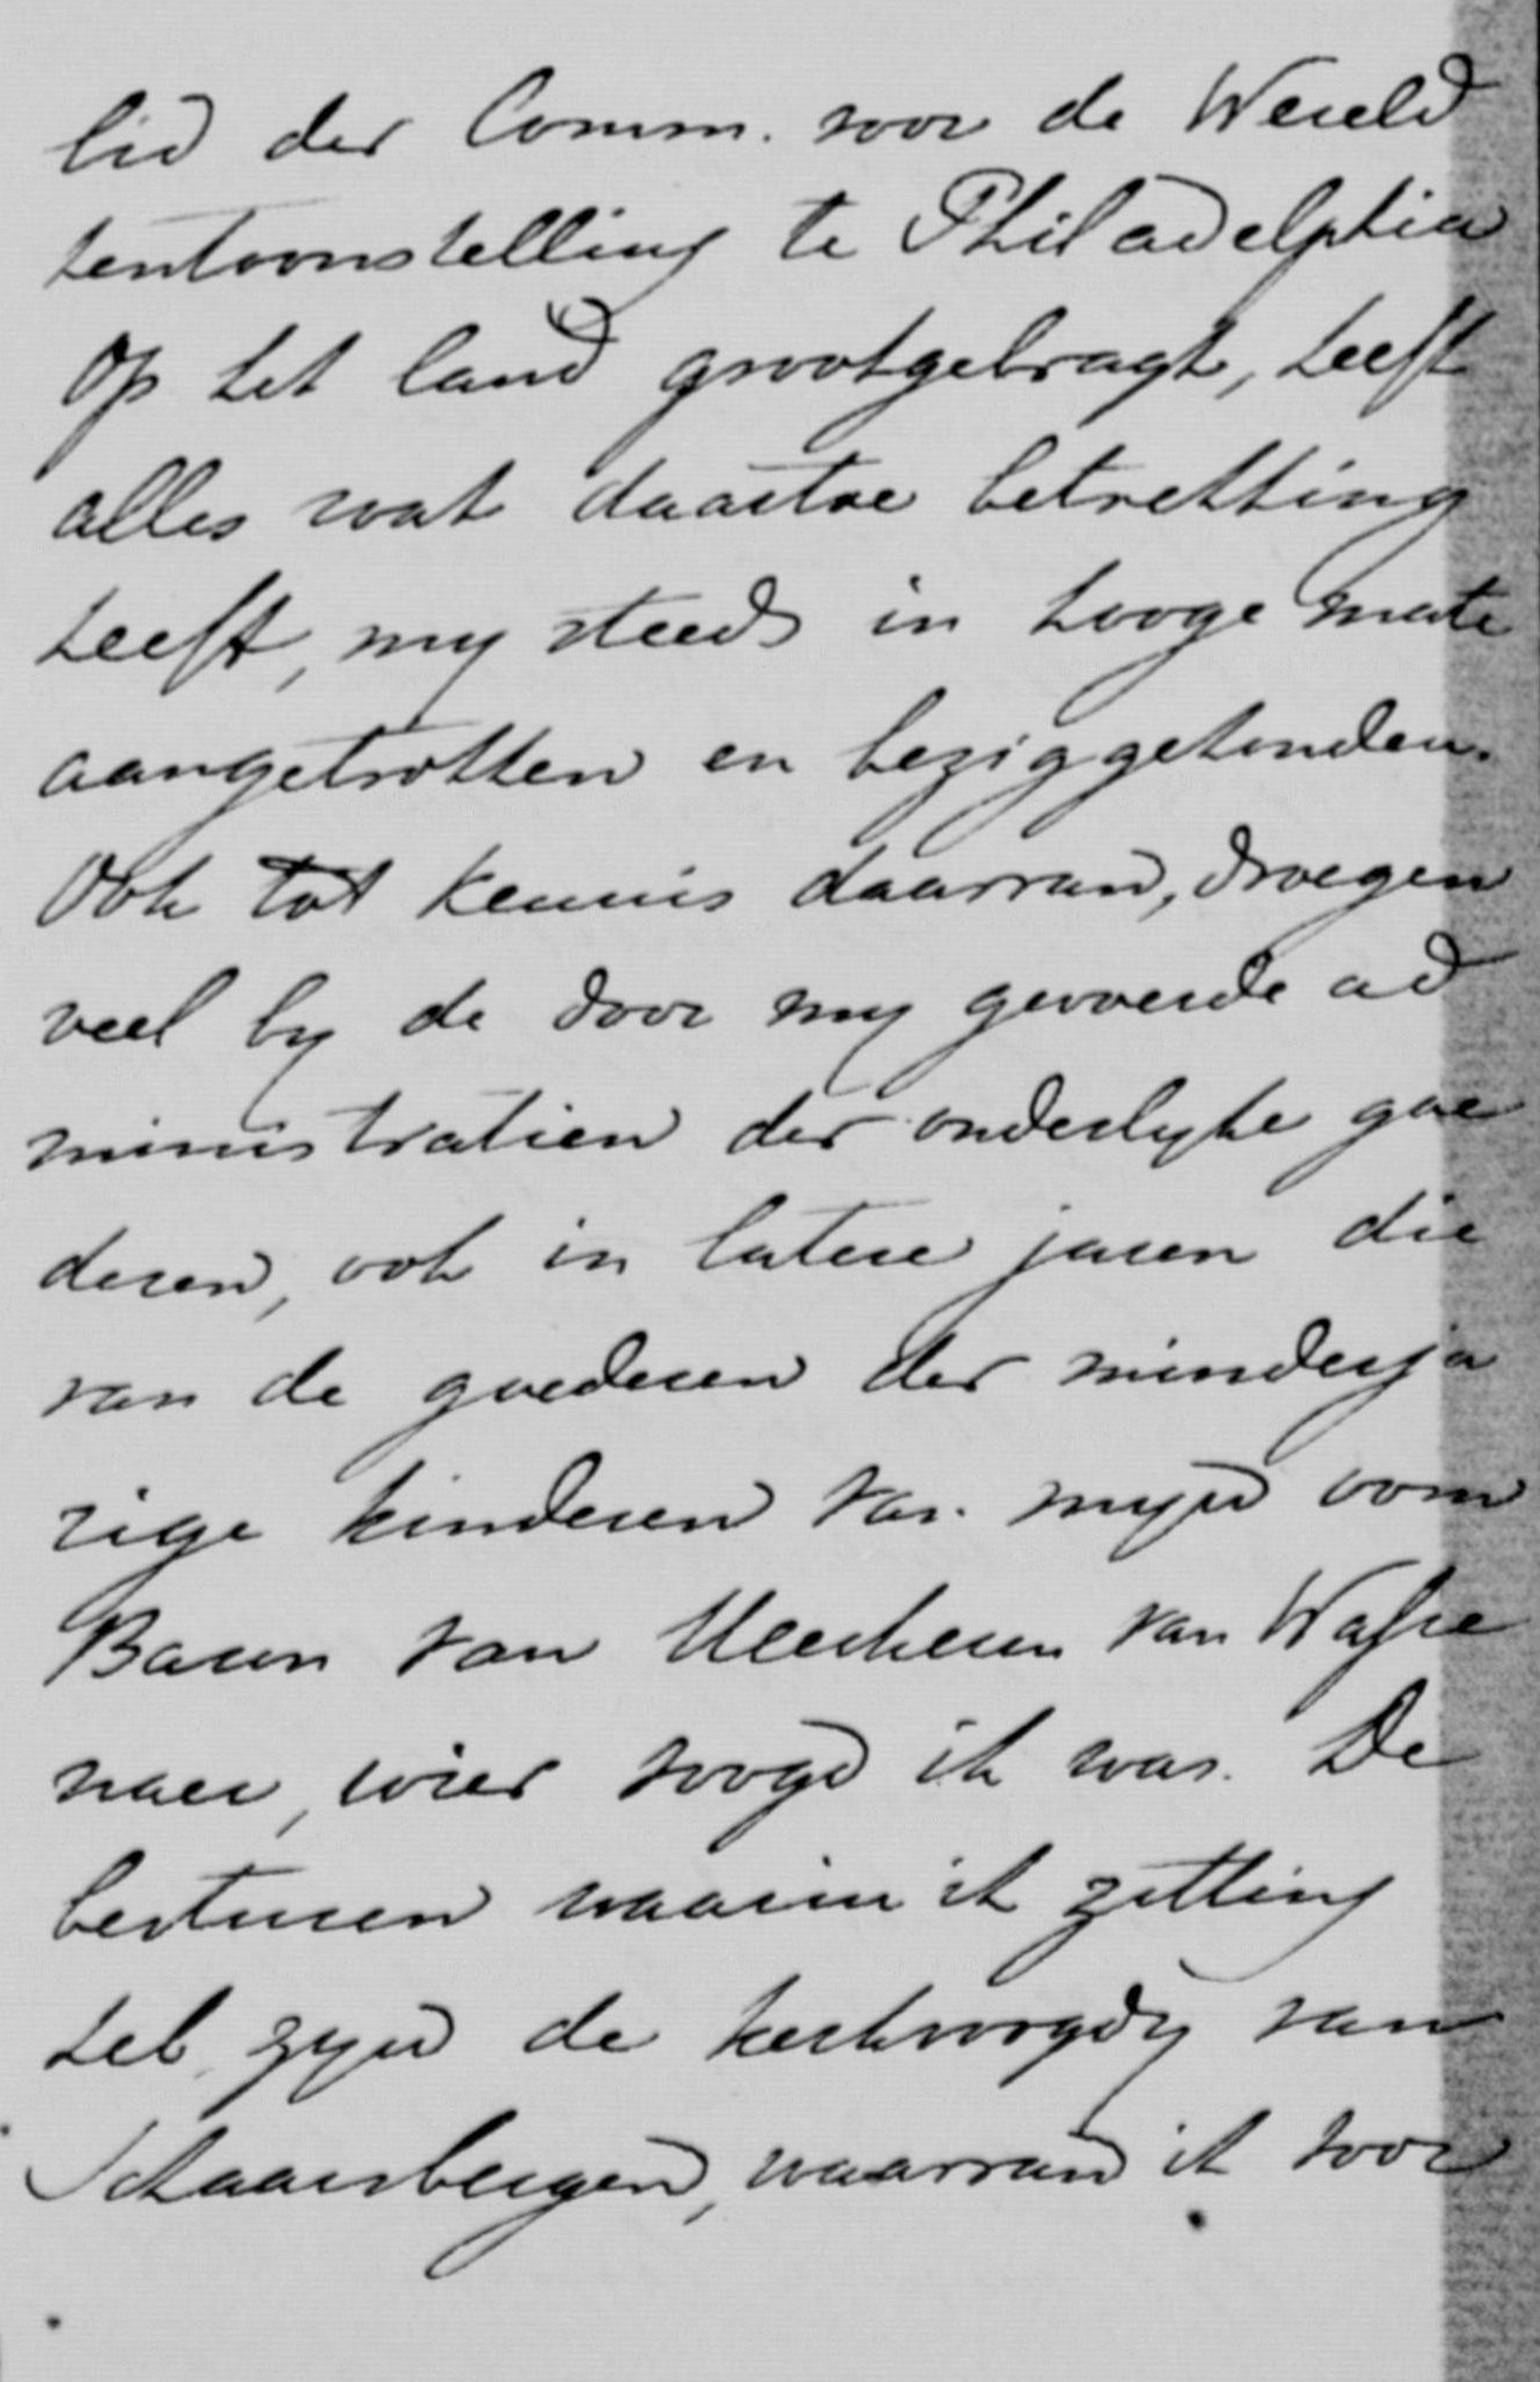 lid der Comm. voor de Wereld
tentoonstelling te Philadelphia
Op het land grootgebragt, heeft
alles wat daartoe betrekking
heeft, my steeds in hooge mate
aangetrokken en beziggehouden.
Ook tot kennis daarvan, droegen
veel by de door my gevoerde ad
ministratien der ouderlyke goe
deren, ook in latere jaren die
van de goederen der minderja
rige kinderen van myn oom
Baron van Heeckeren van Wasse
naer, wier voogd ik was. De
besturen waarin ik zitting
heb, zyn de kerkvoogdy van
Schaarsbergen, waarvan ik voor